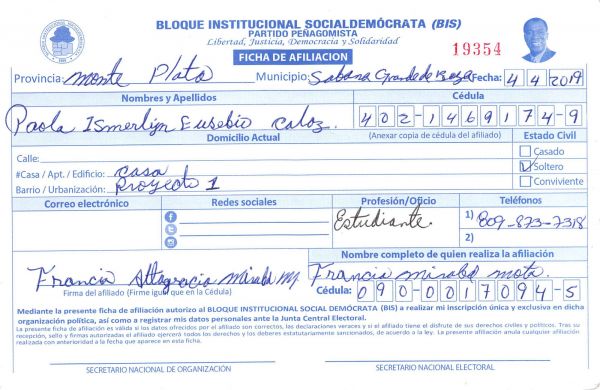 BLOQUE INSTITUCIONAL SOCIALDEMÓCRATA (BIS)
PARTIDO PEÑAGOMISTA
Libertad, Justicia, Democracia y Solidaridad
FICHA DE AFILIACION
19354
Provincia: Monte Plata Municipio: Sabana Grande de Boya Fecha: 4 4 2019
Nombres y Apellidos Cédula
Paola Ismerlyn Eusebio 402-1469174-9
Domicilio Actual (Anexar copia de cédula del afiliado) Estado Civil
Calle: Casado
#Casa / Apt. / Edificio: Casa Soltero
Barrio / Urbanización: Proyecto 1 Conviviente
Correo electrónico Redes sociales Profesión/Oficio Teléfonos
Estudiante. 1) 809-873-7318
2)
Nombre completo de quien realiza la afiliación
Francia Altagracia M. Francia mota.
Firma del afiliado (Firme igual que en la Cédula) Cédula: 090-0017094-5
Mediante la presente ficha de afiliación autorizo al BLOQUE INSTITUCIONAL SOCIAL DEMÓCRATA (BIS) a realizar mi inscripción única y exclusiva en dicha
organización política, así como a registrar mis datos personales ante la Junta Central Electoral.
La presente ficha de afiliación es válida si los datos ofrecidos por el afiliado son correctos, las declaraciones veraces y si el afiliado tiene el disfrute de sus derechos civiles y políticos. Tras su
recepción, sello y firmas autorizadas el afiliado ejercerá todos los derechos y los deberes estatutariamente sancionados, de acuerdo a la ley. La presente afiliación anula cualquier afiliación
realizada con anterioridad a la fecha que aparece en esta ficha.
SECRETARIO NACIONAL DE ORGANIZACIÓN SECRETARIO NACIONAL ELECTORAL